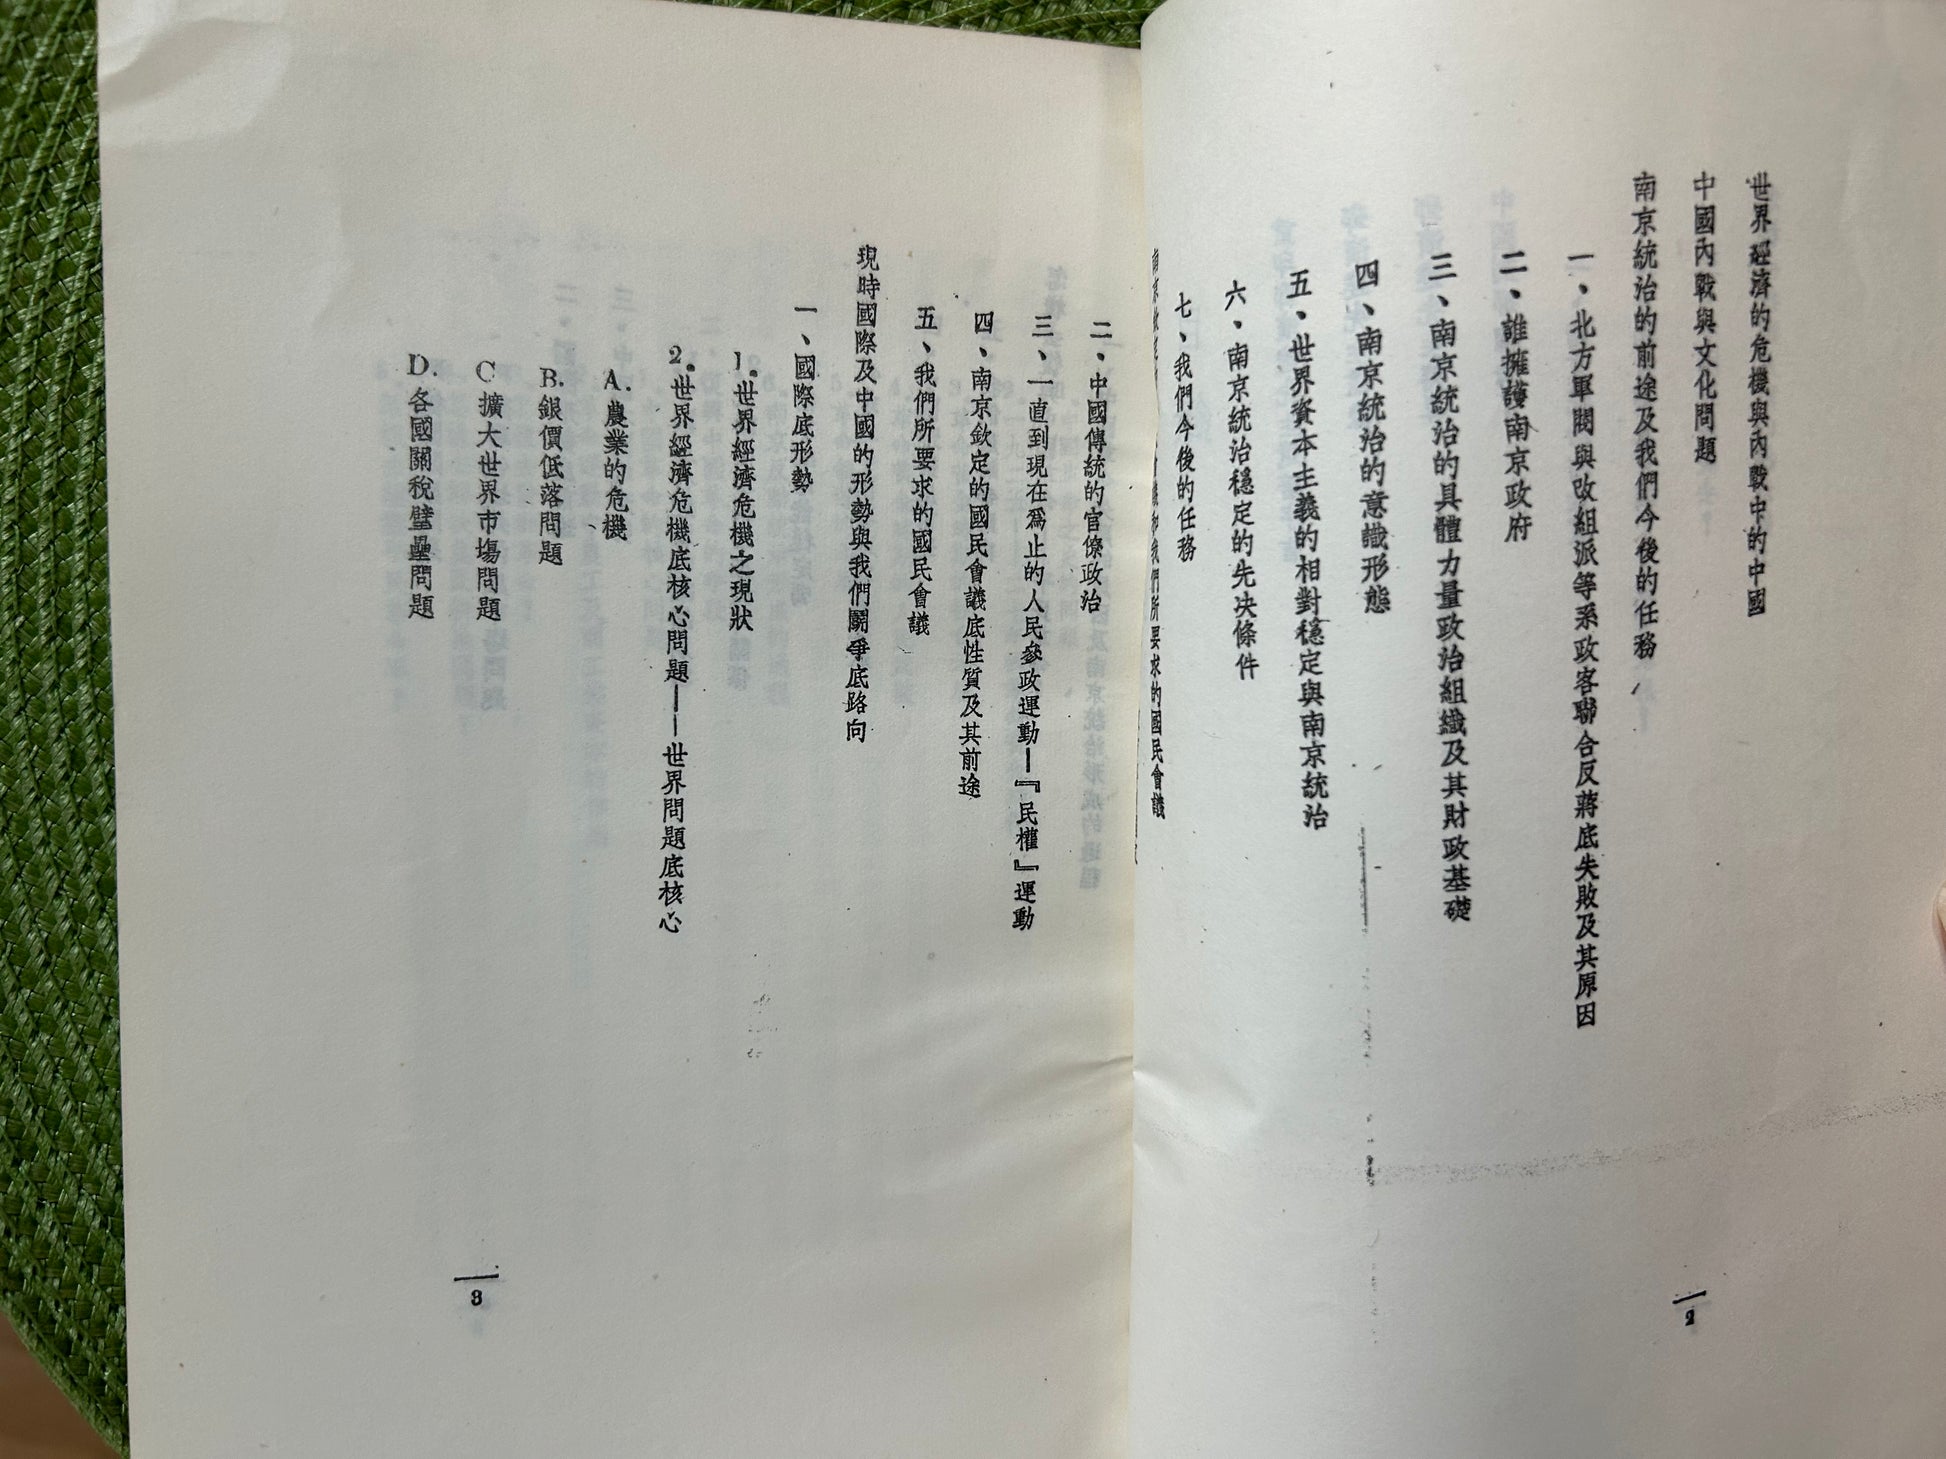 世界經濟的危機與內戰中的中國
中國內戰與文化問題
南京統治的前途及我們今後的任務
一、北方軍閥與改組派等系政客聯合反蔣底失敗及其原因
二、誰擁護南京政府
三、南京統治的具體力量政治組織及其財政基礎
四、南京統治的意識形態
五、世界資本主義的相對穩定與南京統治
六、南京統治穩定的先决條件
七、我們今後的任務
我們所要求的國民會議
2
二、中國傳統的官僚政治
三、一直到現在爲止的人民參政運動—『民權』運動
四、南京欽定的國民會議底性質及其前途
五、我們所要求的國民會議
現時國際及中國的形勢與我們鬭爭底路向
一、國際底形勢
1.世界經濟危機之現狀
2.世界經濟危機底核心問題——世界問題底核心
A.農業的危機
B.銀價低落問題
C擴大世界市塲問題
D.各國關稅壁壘問題
3